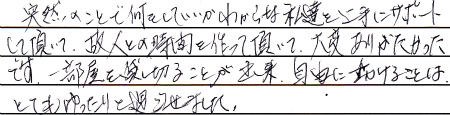 突然のことで何をしていいかわからない私達を上手にサポート
して頂いて、故人との時間を作って頂いて、大変ありがたかった
です。一部屋を貸し切ることが出来、自由に動けることは、
とてもゆったりと過ごせました。